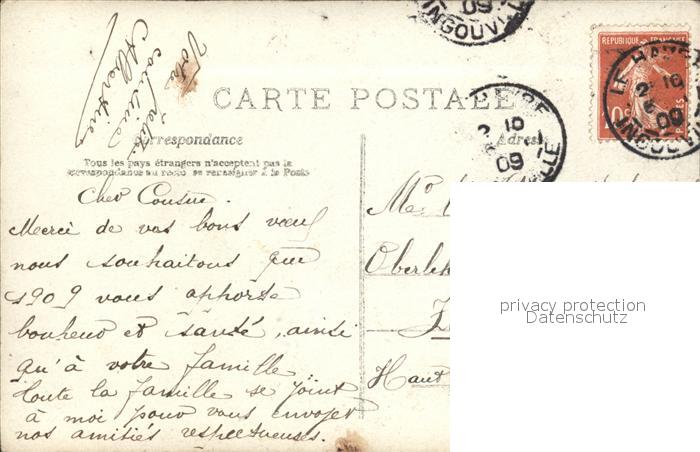 09
INGOUVILLE
Votre
cousine
Albertine
REPUBLIQUE FRANÇAISE
10c
POSTES
LE HAVRE
10
09
INGOUVILLE
CARTE POSTALE
HAVRE
10
09
Correspondance
Adresse
Tous les pays étrangers n'acceptent pas la
correspondance au recto se renseigner à la Poste
Cher Cousin.
Merci de vos bons vœux
nous souhaitons que
1909 vous apporte
bonheur et santé, ainsi
qu'à votre famille
toute la famille se joint
à moi pour vous envoyer
nos amitiés respectueuses.
Haut
privacy protection
Datenschutz